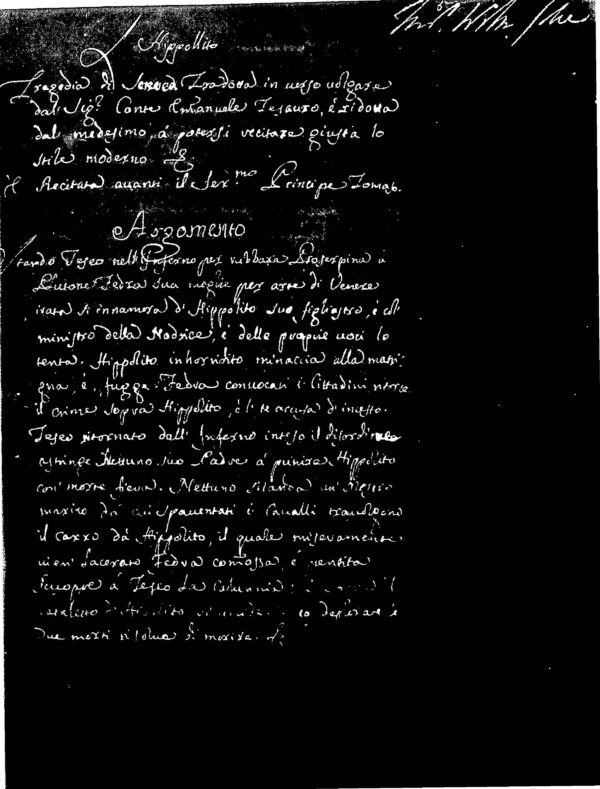 Hippolito
Tragedia di Seneca Tradotta in verso volgare
dal Sig.r Conte Emanuele Tesauro, è ridotta
dal medesimo, á potersi recitare giusta lo
stile moderno
è Recitata auanti il Ser.mo Principe Tomas.
Argomento
Stando Teseo nell'Inferno per rubbare Proserpina a
Plutone Fedra sua moglie per arte di Venere
irata si innamora d'Hippolito suo figliastro, è col
ministro della Nodrice, è delle proprie uoci lo
tenta. Hippolito inhorridito minaccia alla matri
gna, è fugge. Fedra conuocati i Cittadini ritorce
il crime sopra Hippolito, è l'accusa d'incesto.
Teseo ritornato dall'Inferno inteso il disordine
astringe Nettuno suo Padre á punire Hippolito
con morte fiera. Nettuno slancia un Mostro
marino dá cui spauentati i Caualli trauolgono
il carro dá Hippolito, il quale miseramente
uien lacerato Fedra comossa, è pentita
scuopre á Teseo la Calunnia:
d'Hippolito deplorare i
due morti risolue di morire.